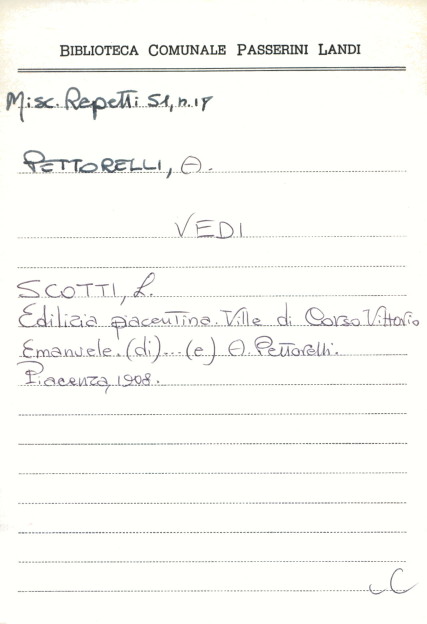 BIBLIOTECA COMUNALE PASSERINI LANDI
Misc. Repetti 51, n. 17
PETTORELLI, A.
VEDI
SCOTTI, L.
Edilizia piacentina. Ville di Corso Vittorio
Emanuele. (di)... (e) A. Pettorelli.
Piacenza, 1908.